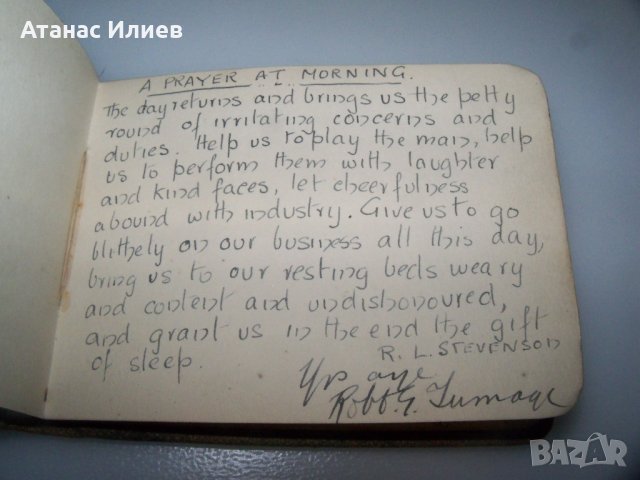 Атанас Илиев
A PRAYER AT MORNING.
The day returns and brings us the petty
round of irritating concerns and
duties. Help us to play the man, help
us to perform them with laughter
and kind faces, let cheerfulness
abound with industry. Give us to go
blithely on our business all this day,
bring us to our resting beds weary
and content and undishonoured,
and grant us in the end the gift
of sleep.
R. L. STEVENSON
Yrs aye
Robt. G. Turnage
BAZAR